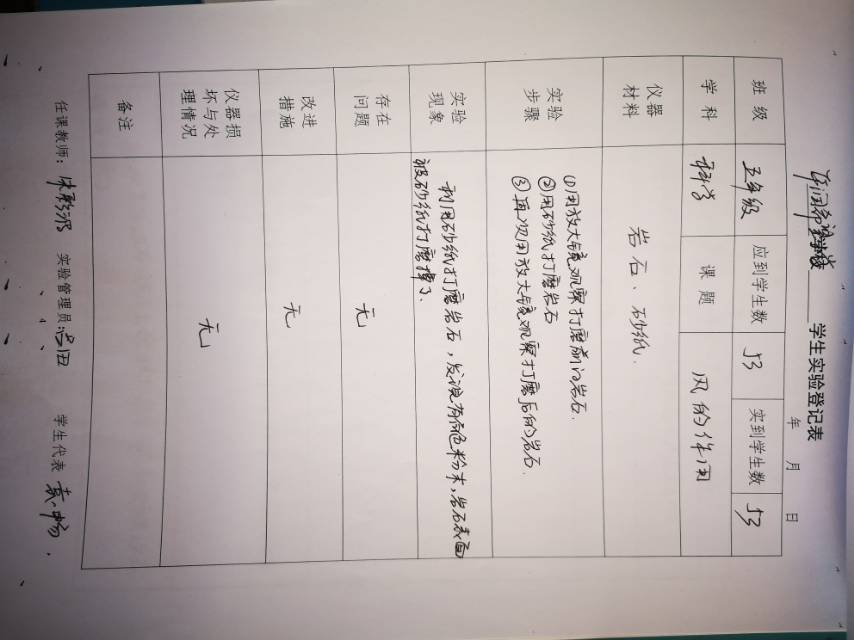 学生实验登记表
年 月 日
班级 五年级 应到学生数 53 实到学生数 53
学科 科学 课题 风的作用
仪器材料 岩石、砂纸.
实验步骤
①用放大镜观察打磨前的岩石.
②用砂纸打磨岩石
③再次用放大镜观察打磨后的岩石.
实验现象
利用砂纸打磨岩石,发现有白色粉末,岩石表面
被砂纸打磨掉了.
存在问题 无
改进措施 无
仪器损坏与处理情况 无
备注
任课教师: 实验管理员 学生代表 袁畅.